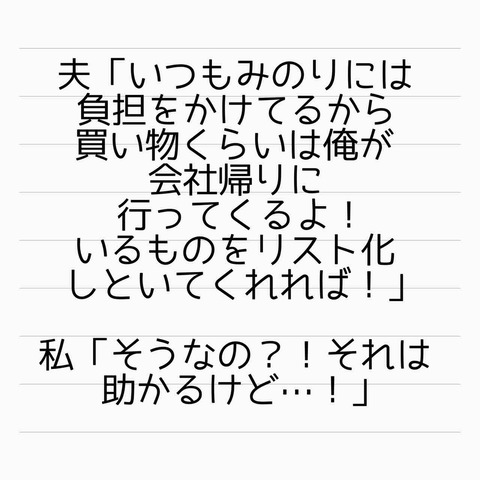 夫「いつもみのりには
負担をかけてるから
買い物くらいは俺が
会社帰りに
行ってくるよ！
いるものをリスト化
しといてくれれば！」
私「そうなの？！それは
助かるけど…！」